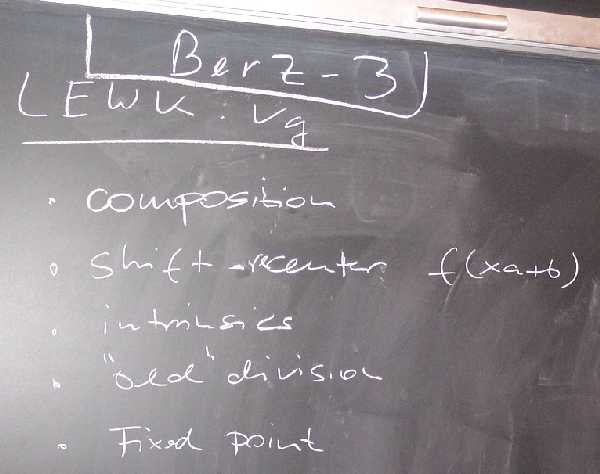 Berz-3
(EWK. Vg
· composition
· shift-recenter f(xa+b)
· intrinsics
· "old" division
· Fixed point